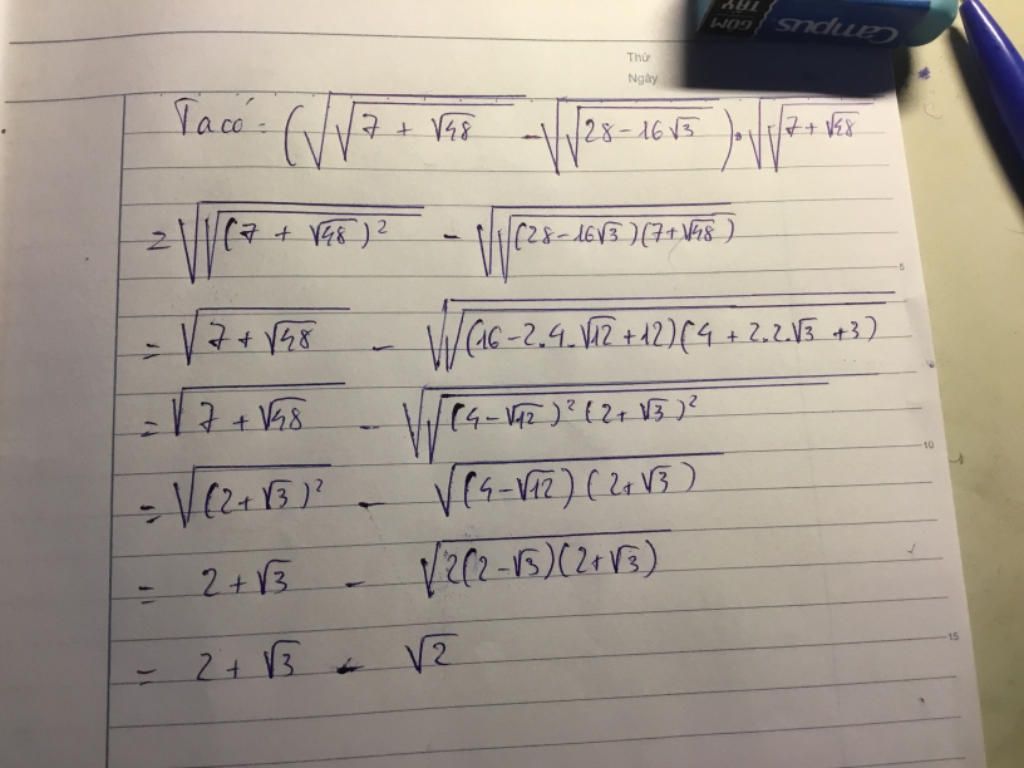 GÔM
TẨY
Campus
Thứ
Ngày
Ta có: (√√(7 + √48) - √√(28 - 16√3)) . √√(7 + √48)
= √√((7 + √48)²) - √√((28 - 16√3)(7 + √48))
5
= √(7 + √48) - √√((16 - 2.4.√12 + 12)(4 + 2.2.√3 + 3))
= √(7 + √48) - √√((4 - √12)²(2 + √3)²)
10
= √((2 + √3)²) - √((4 - √12)(2 + √3))
= 2 + √3 - √(2(2 - √3)(2 + √3))
= 2 + √3 - √2
15